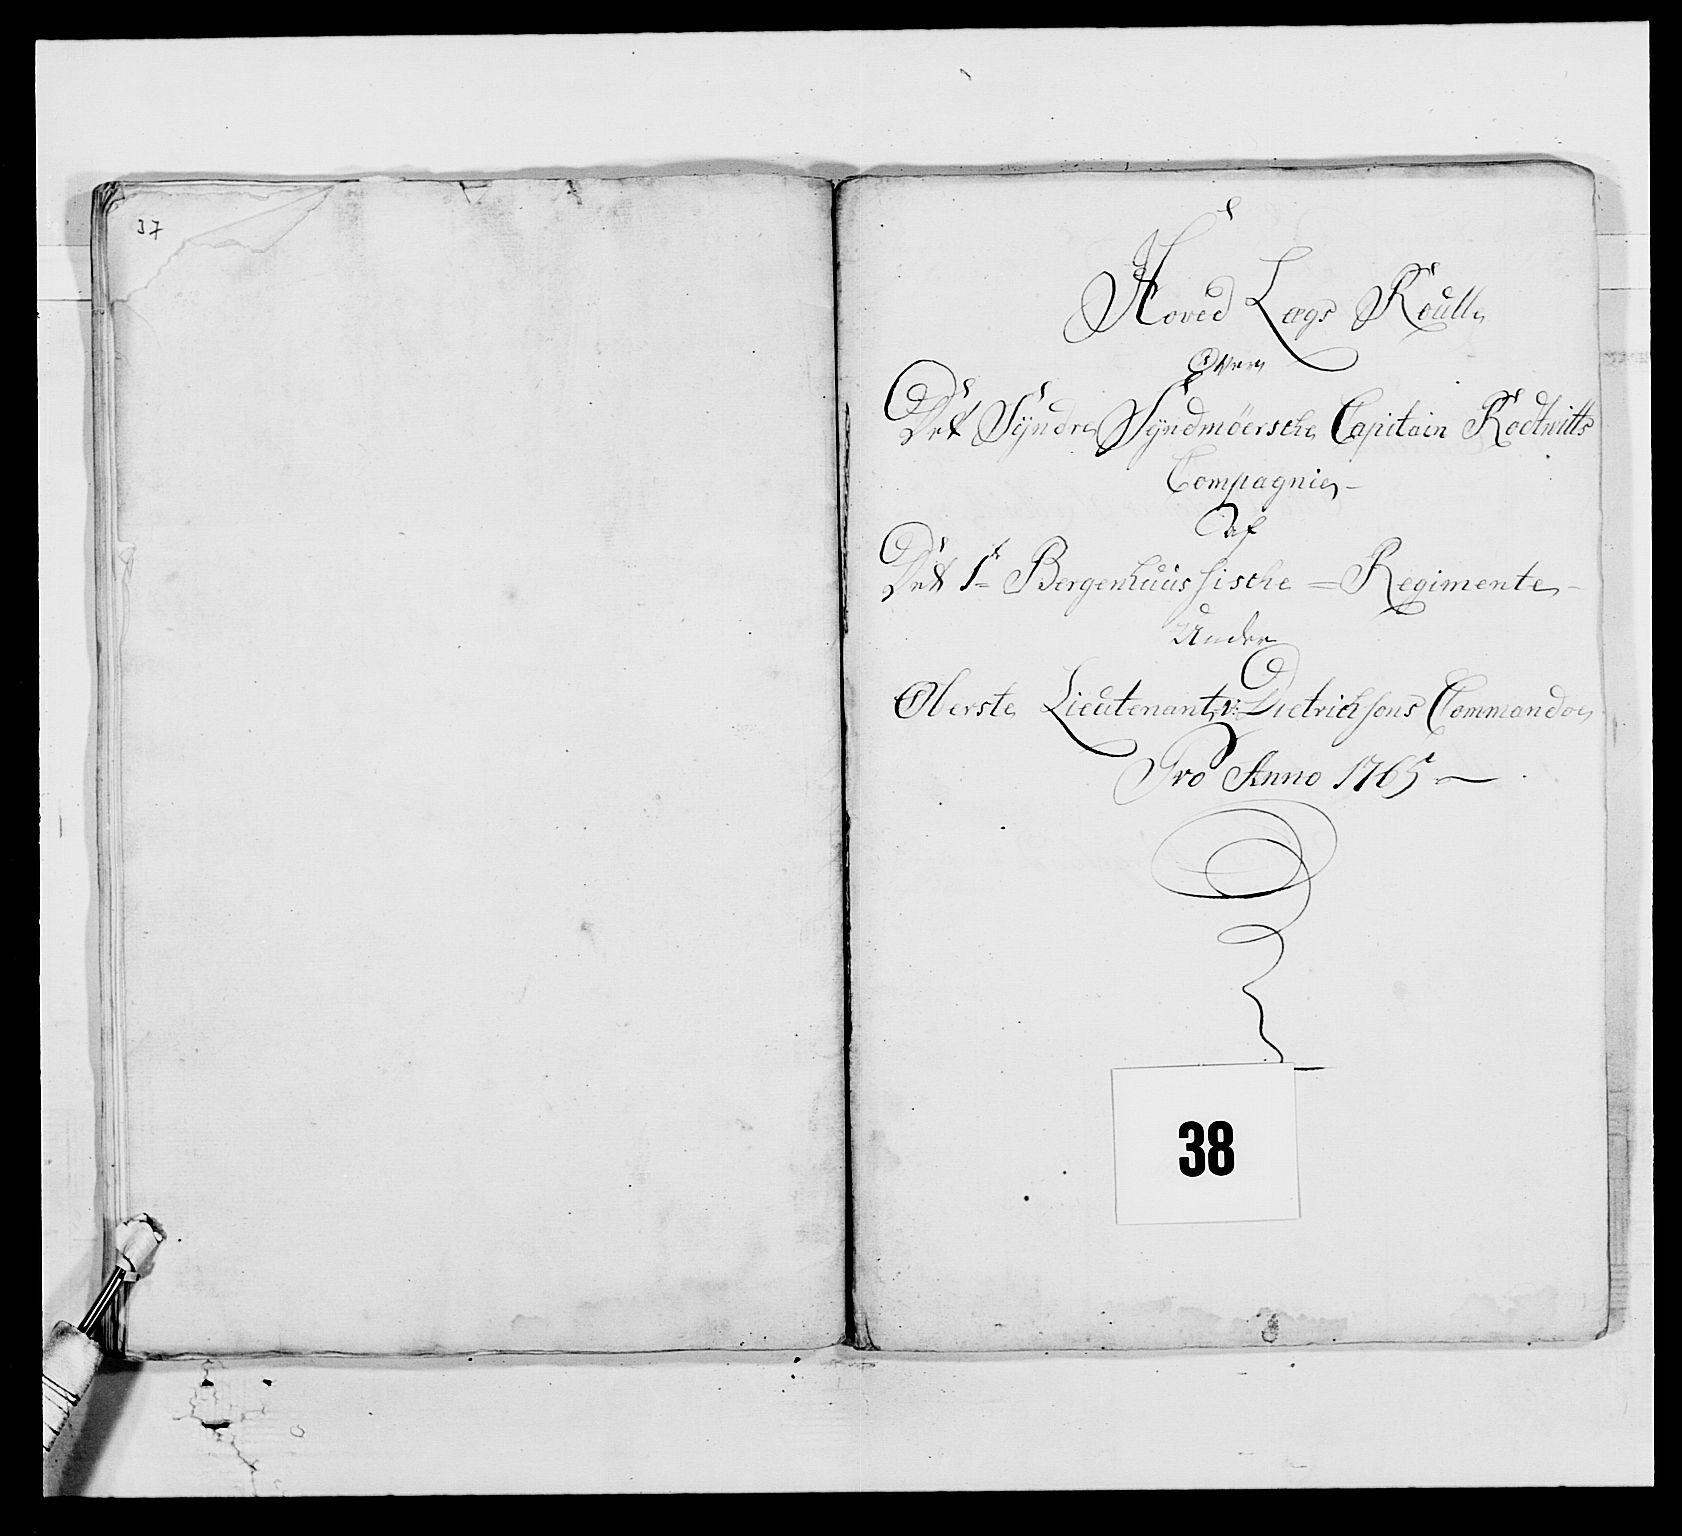 37
Hoved Lægs Roulle
Over
Det Syndre Syndmöersche Capitain Rodtwitts
Compagnie
Af
Det 1te Bergenhuussische Regimente
Under
Oberste Lieutenant v: Dietrichsons Commando
Pro Anno 1765
38